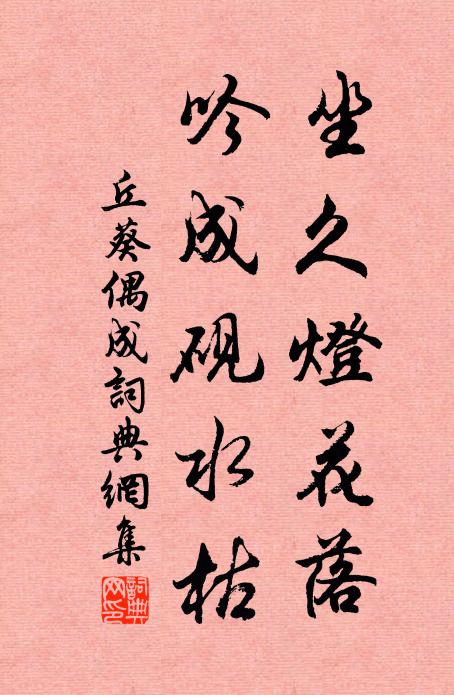 坐久燈花落
吟成硯水枯
丘葵偶成詞典網集
詞典網印